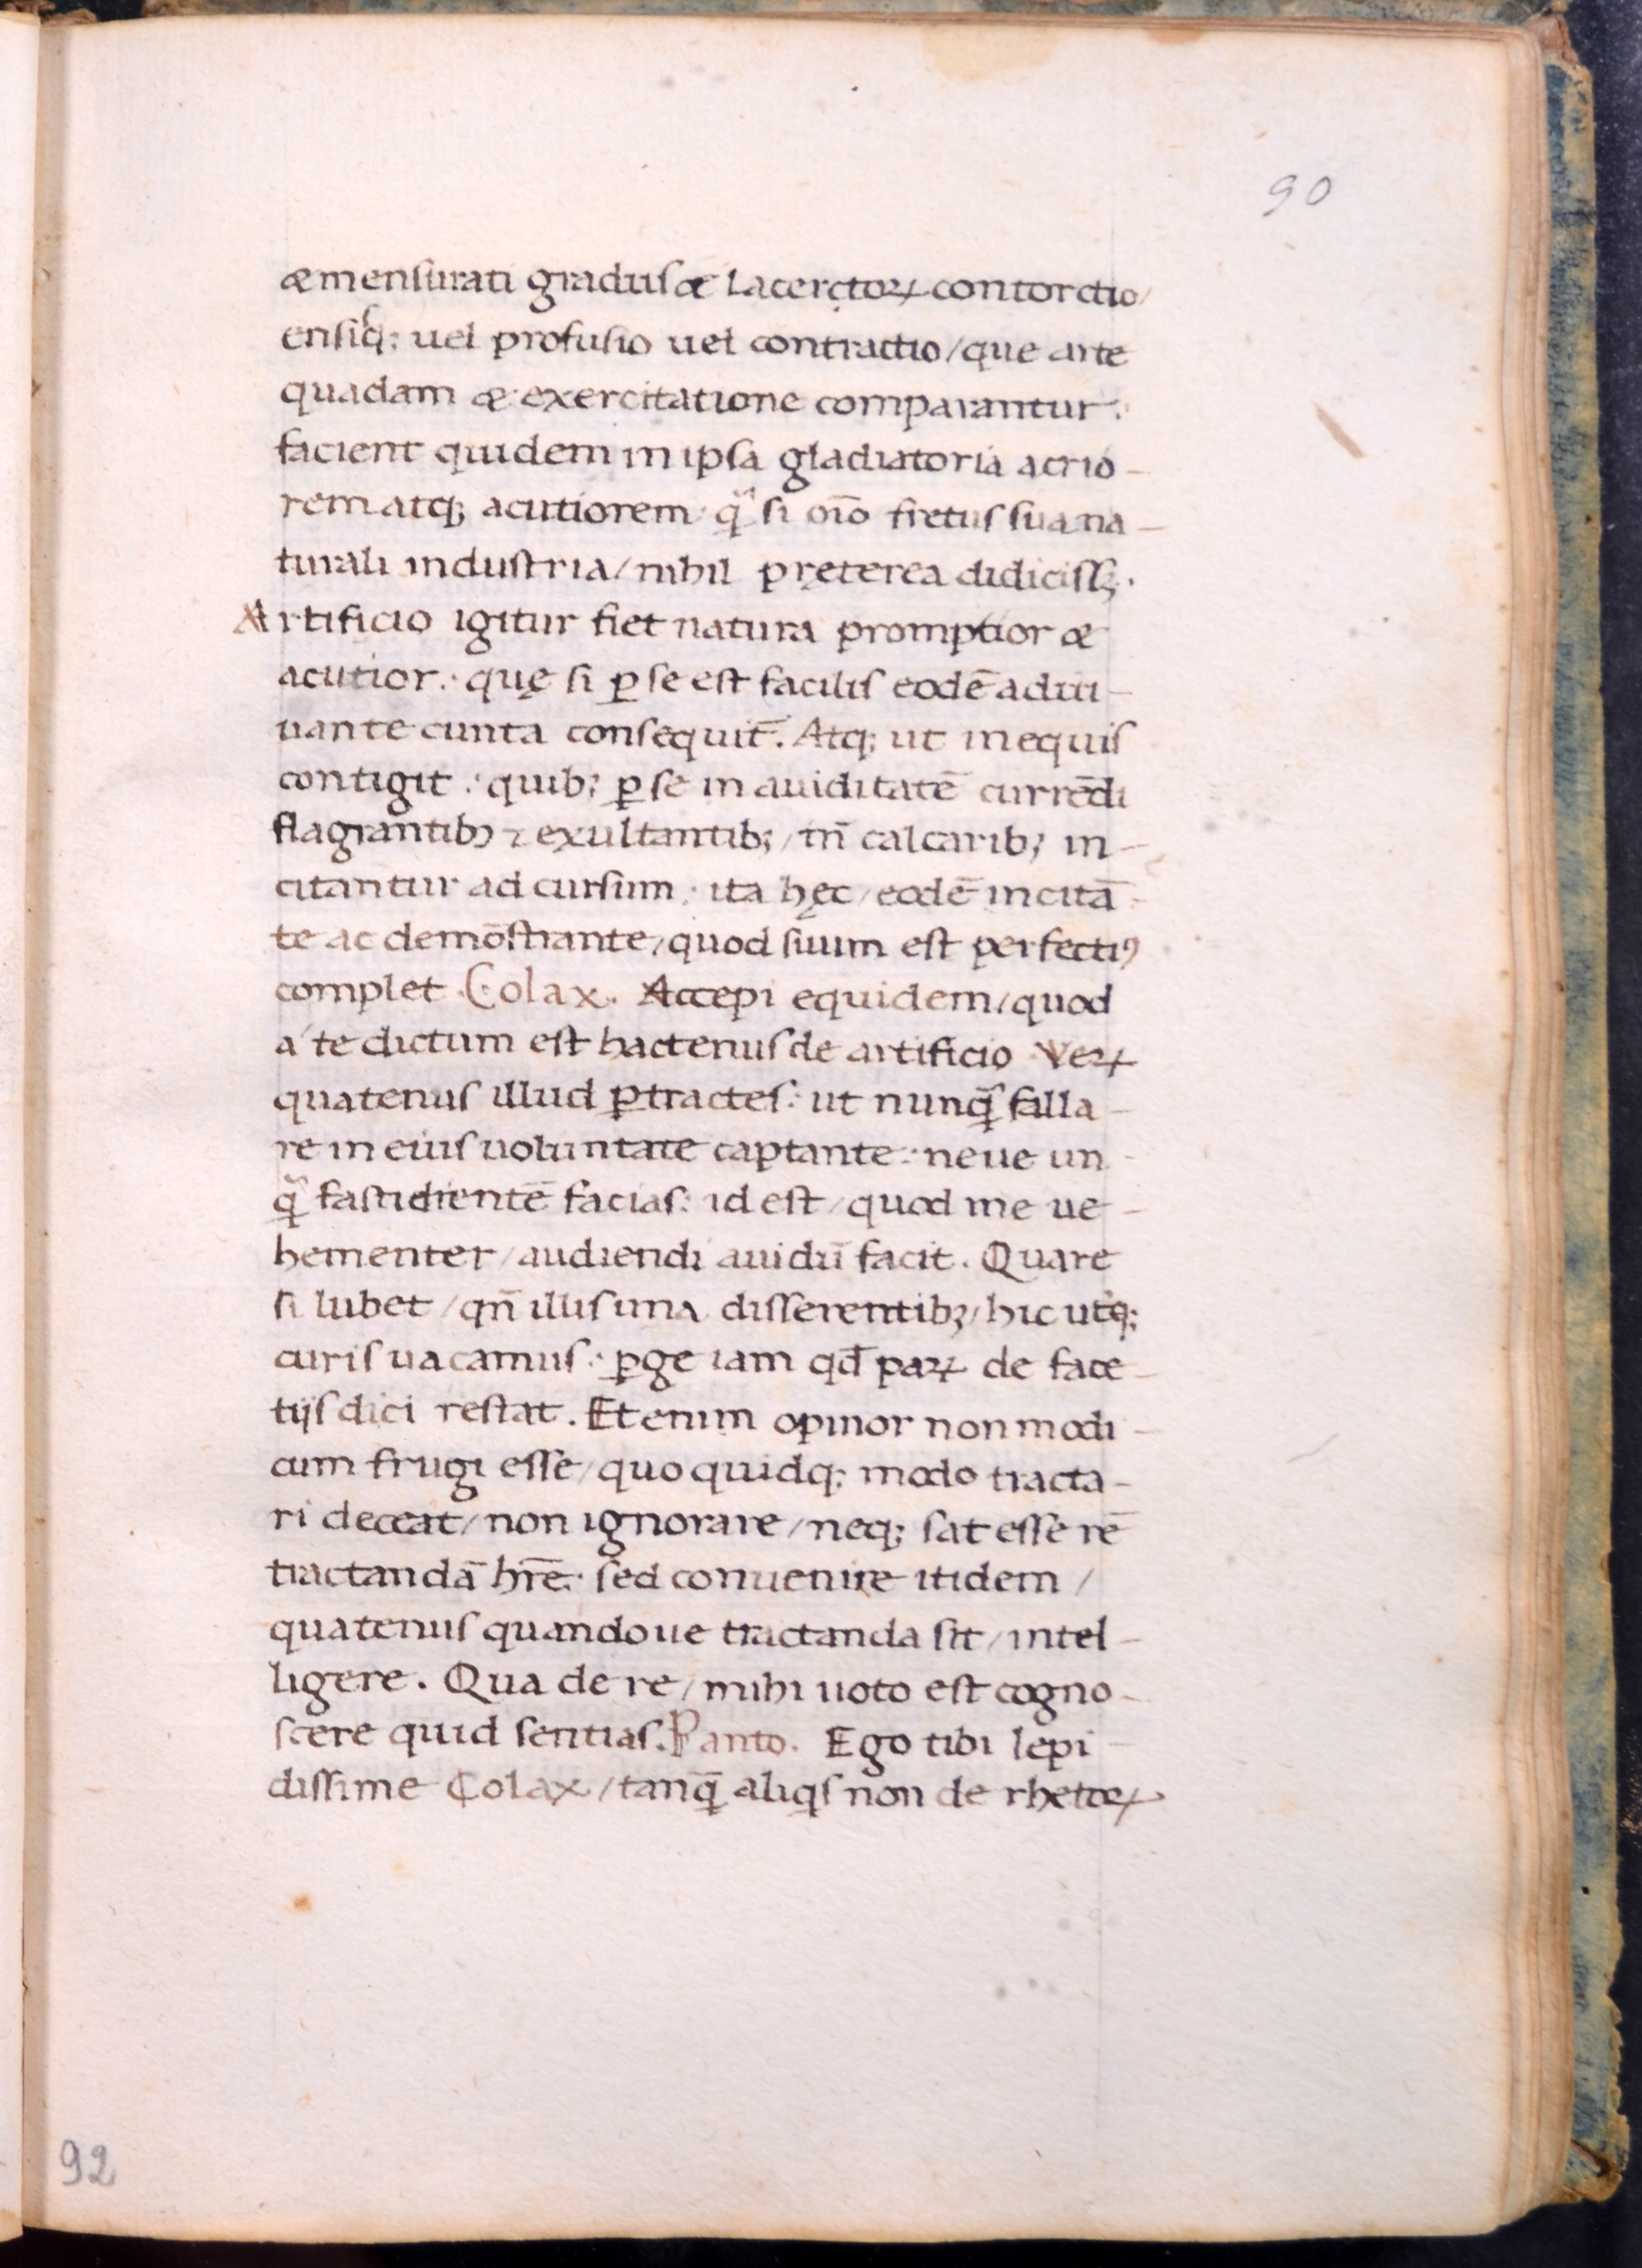 90
æ mensurati gradus æ lacertoꝝ contorctio/
ensisq; uel profusio uel contractio/ que arte
quadam æ exercitatione comparantur:
facient quidem in ipsa gladiatoria acrio-
rem atq; acutiorem: q̃ si oĩo fretus sua na-
turali industria/ nihil pręterea didiciss;.
Artificio igitur fiet natura promptior æ
acutior: quę si ꝑ se est facilis eodē adiu-
uante cunta consequit̄. Atq; ut in equis
contigit: quib; ꝑ se in auiditatē currēdi
flagrantibꝫ ⁊ exultantib;/ tn̄ calcarib; in-
citantur ad cursum: ita hęc/ eodē incitā-
te ac demōstrante/ quod suum est perfectiꝰ
complet. Colax. Accepi equidem/ quod
a te dictum est hactenus de artificio. Veꝝ
quatenus illud ꝑtractes: ut nunq̃ falla-
re in eius uoluntate captante: neue un-
q̃ fastidientē facias: id est/ quod me ue-
hementer/ audiendi auidū facit. Quare
si lubet/ qn̄ illis una disserentibꝫ/ hic utq;
curis uacamus: ꝑge iam qd̄ paꝝ de face-
tijs dici restat. Etenim opinor non modi-
cum frugi esse/ quo quidq; modo tracta-
ri deceat/ non ignorare/ neq; sat esse rē
tractandā hr̄e: sed conuenire itidem/
quatenus quandoue tractanda sit/ intel-
ligere. Qua de re/ mihi uoto est cogno-
scere quid sentias. Panto. Ego tibi lepi-
dissime Colax/ tanq̃ aliqs non de rhetoꝝ
92